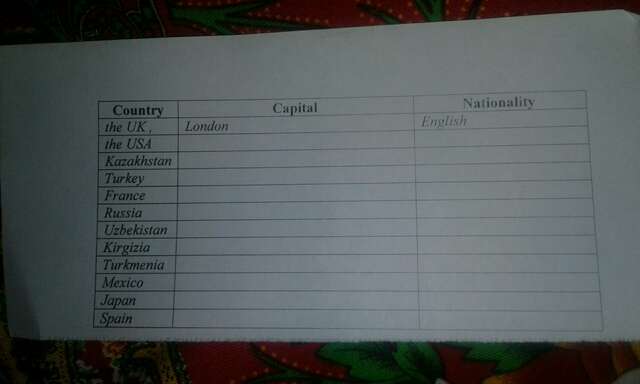 Country Capital Nationality
the UK , London English
the USA
Kazakhstan
Turkey
France
Russia
Uzbekistan
Kirgizia
Turkmenia
Mexico
Japan
Spain